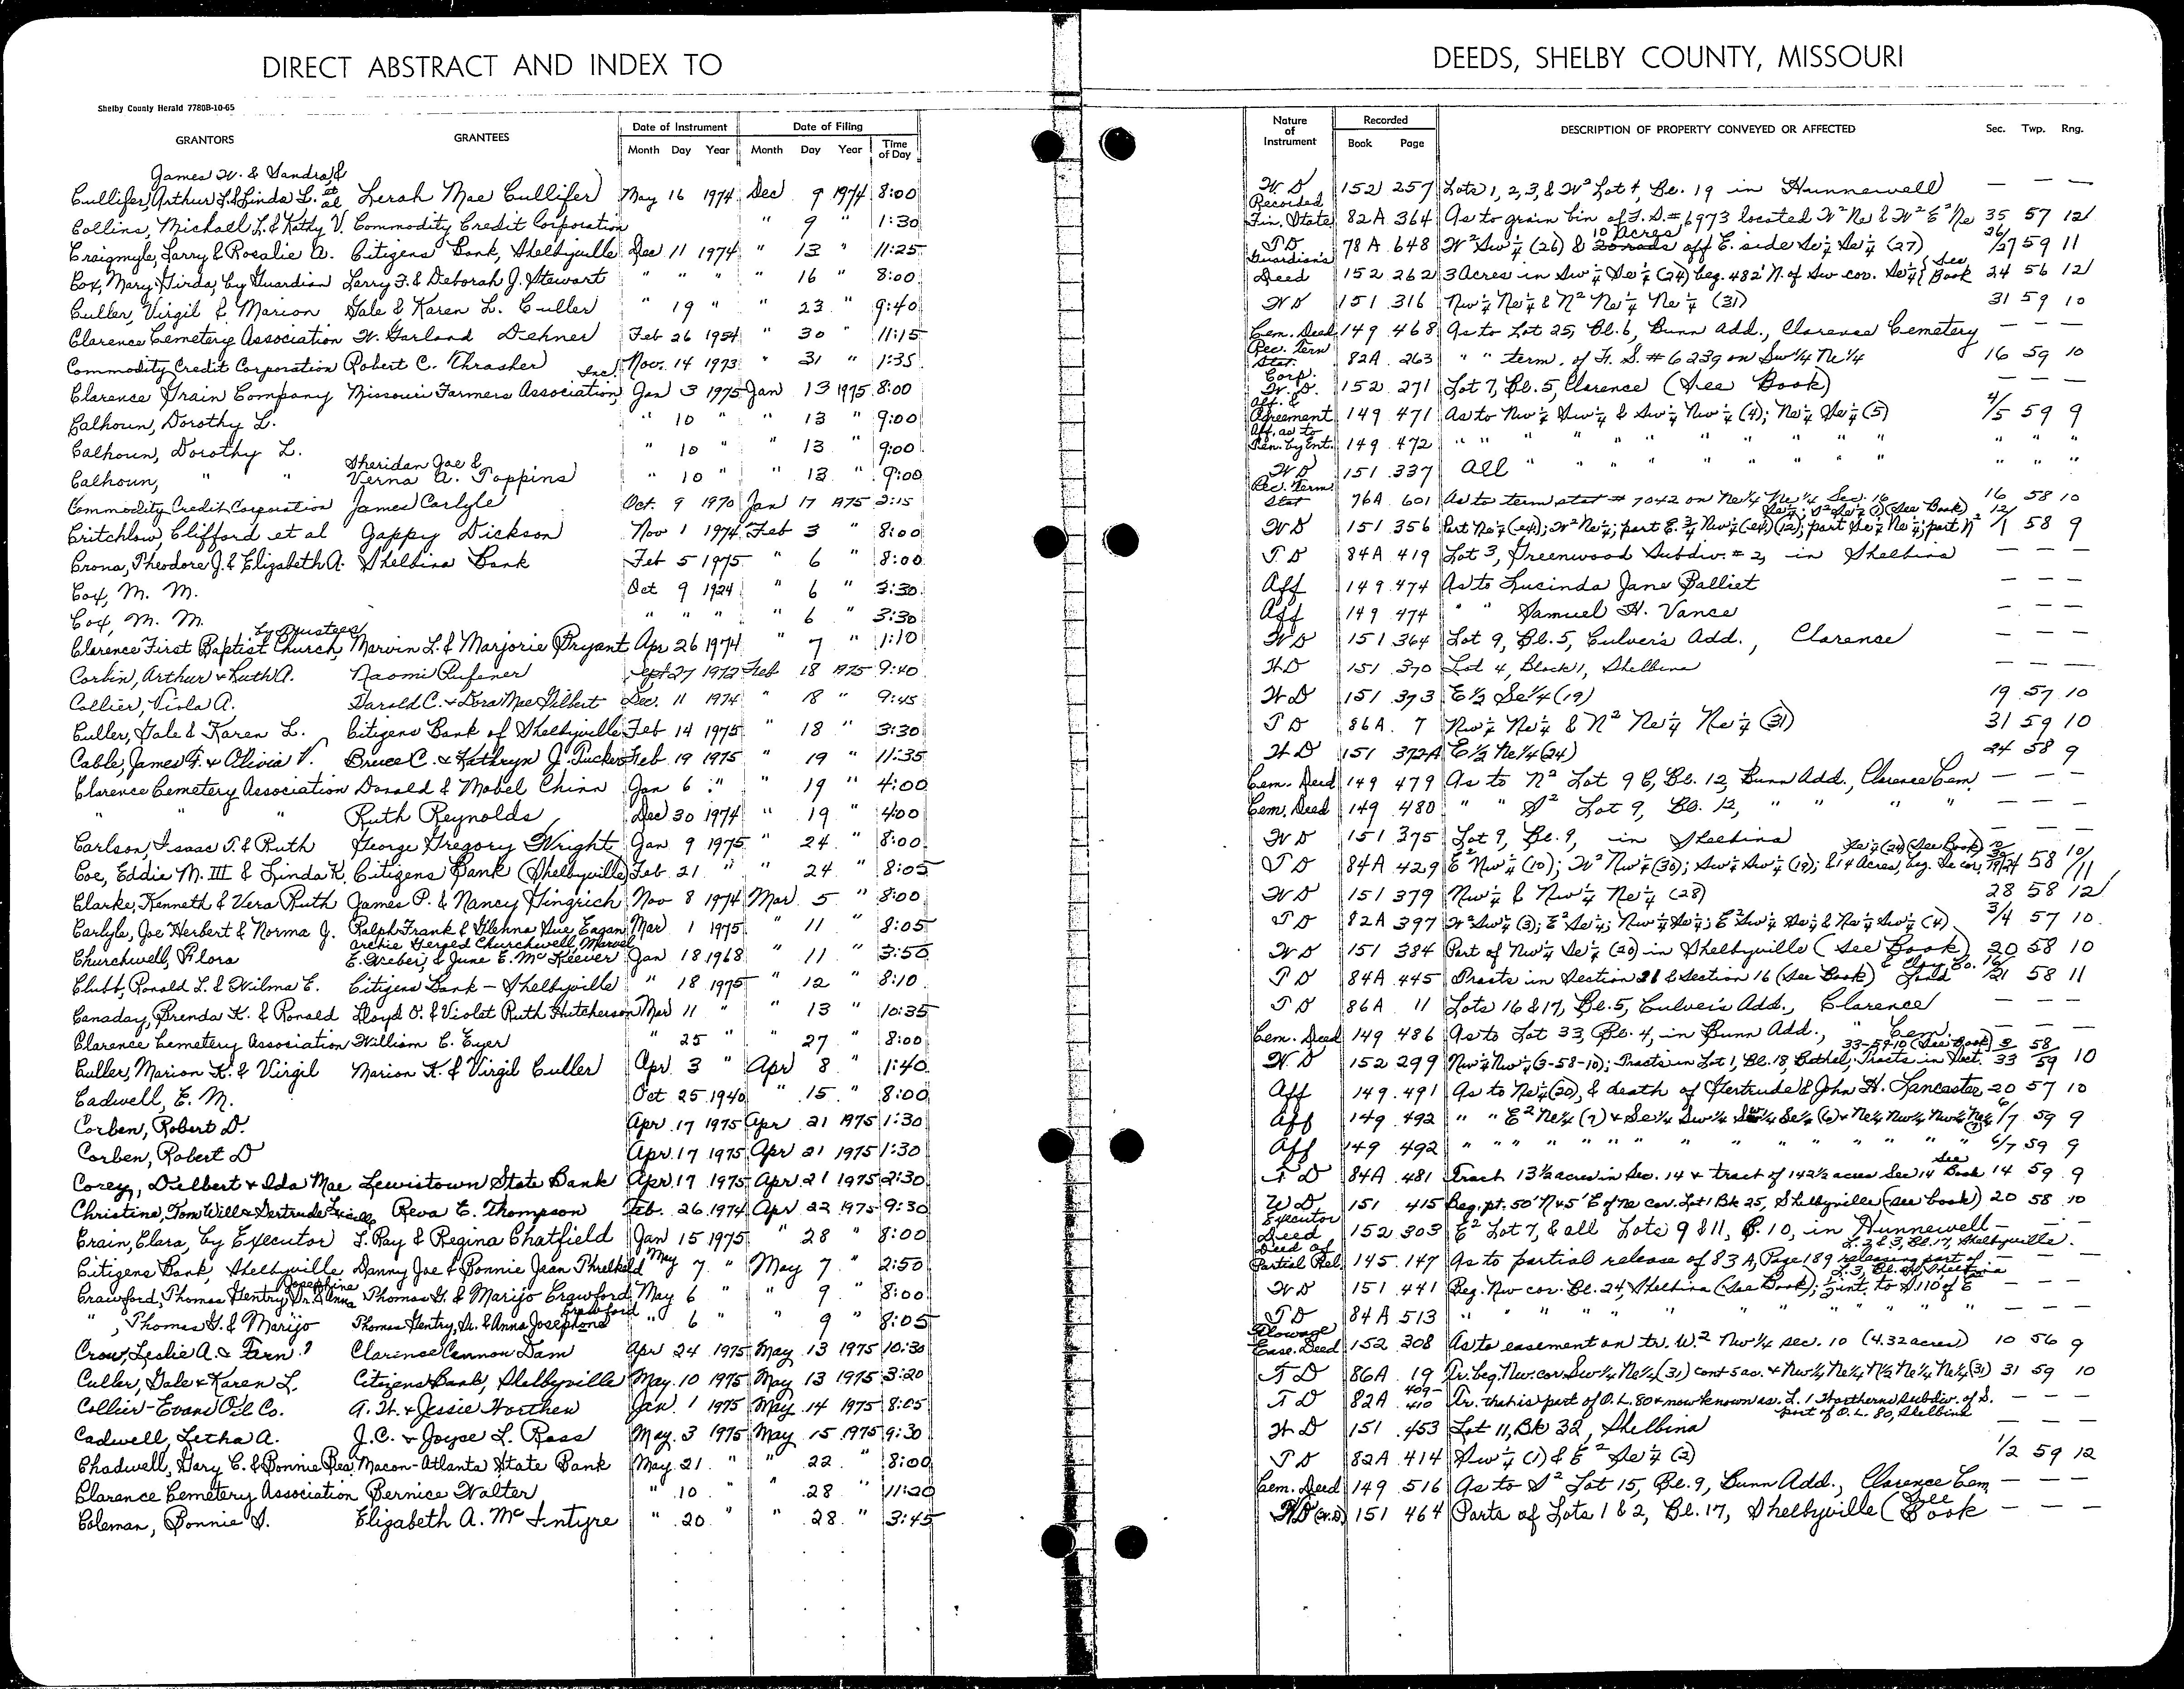 DIRECT ABSTRACT AND INDEX TO
DEEDS, SHELBY COUNTY, MISSOURI
Shelby County Herald 7780B-10-65
GRANTORS GRANTEES Date of Instrument Date of Filing Time of Day
Month Day Year Month Day Year
Nature of Instrument Recorded Book Page DESCRIPTION OF PROPERTY CONVEYED OR AFFECTED Sec. Twp. Rng.
James W. & Sandra &
Cullifer, Arthur L. & Linda L. et al Lerah Mae Cullifer May 16 1974 Dec 9 1974 8:00 WD 152 257 Lots 1, 2, 3, & W² Lot 4, Bl. 19 in Hunnewell — — —
Collins, Michael L. & Kathy V. Commodity Credit Corporation " 9 " 1:30 Recorded Fin. State 82A 364 As to grain bin of F.S. # 6973 located W² Ne & W² E² Ne 35 57 12
Craigmyle, Larry & Rosalie A. Citizens Bank, Shelbyville Dec 11 1974 " 13 " 11:25 TD 78A 648 W² Sw ¼ (26) & 10 Acres off E. side Se ¼ Se ¼ (27) 26/27 59 11
Cox, Mary Girda, by Guardian Larry F. & Deborah J. Stewart " " " " 16 " 8:00 Guardian's Deed 152 262 3 Acres in Sw ¼ Se ¼ (24) beg. 482' N. of Sw cor. Se ¼ { See Book 24 56 12
Culler, Virgil & Marion Gale & Karen L. Culler " 19 " " 23 " 9:40 WD 151 316 Nw ¼ Ne ¼ & N² Ne ¼ Ne ¼ (31) 31 59 10
Clarence Cemetery Association W. Garland Dehner Feb 26 1954 " 30 " 11:15 Cem. Deed 149 468 As to Lot 25, Bl. 6, Bunn Add., Clarence Cemetery — — —
Commodity Credit Corporation Robert C. Thrasher Nov. 14 1973 " 31 " 1:35 Rec. term Stat. 82A 263 " " term. of F. S. # 6239 on Sw ¼ Ne ¼ 16 59 10
Clarence Grain Company Missouri Farmers Association, Inc. Jan 3 1975 Jan 13 1975 8:00 Corp. W.D. 152 271 Lot 7, Bl. 5, Clarence (See Book) — — —
Calhoun, Dorothy L. " 10 " " 13 " 9:00 Aff. & Agreement 149 471 As to Nw ¼ Sw ¼ & Sw ¼ Nw ¼ (4); Ne ¼ Se ¼ (5) 4/5 59 9
Calhoun, Dorothy L. " 10 " " 13 " 9:00 Aff. as to Ten. by Ent. 149 472 " " " " " " " " " " " "
Calhoun, " " Sheridan Joe & Verna A. Toppins " 10 " " 13 " 9:00 WD 151 337 All " " " " " " " " " "
Commodity Credit Corporation James Carlyle Oct. 9 1970 Jan 17 1975 2:15 Rec. Term Stat 76A 601 As to term stat # 7042 on Ne ¼ Ne ¼ Sec. 16 16 58 10
Critchlow, Clifford et al Gappy Dickson Nov 1 1974 Feb 3 " 8:00 WD 151 356 Part Ne ¼ (ex); W² Ne ¼; part E. ¾ Nw ¼ (ex) (12); part Se ¼ Ne ¼; part N² Se ¼; S² Se ¼ (1) (See Book) 12/1 58 9
Crona, Theodore J. & Elizabeth A. Shelbina Bank Feb 5 1975 " 6 " 8:00 TD 84A 419 Lot 3, Greenwood Subdiv. # 2, in Shelbina — — —
Cox, M. M. Oct 9 1924 " 6 " 3:30 Aff 149 474 As to Lucinda Jane Palliet — — —
Cox, M. M. " " " " 6 " 3:30 Aff 149 474 " " Samuel H. Vance — — —
Clarence First Baptist Church, by trustees Marvin L. & Marjorie Bryant Apr 26 1974 " 7 " 1:10 WD 151 364 Lot 9, Bl. 5, Culver's Add., Clarence — — —
Corbin, Arthur & Ruth A. Naomi Rufener Sept 27 1972 Feb 18 1975 9:40 WD 151 370 Lot 4, Block 1, Shelbina — — —
Collier, Viola A. Harold C. & Dora Mae Gilbert Dec. 11 1974 " 18 " 9:45 WD 151 373 E ½ Se ¼ (19) 19 57 10
Culler, Gale & Karen L. Citizens Bank of Shelbyville Feb 14 1975 " 18 " 3:30 TD 86A 7 Nw ¼ Ne ¼ & N² Ne ¼ Ne ¼ (31) 31 59 10
Cable, James F. & Olivia V. Bruce C. & Kathryn J. Tucker Feb 19 1975 " 19 " 11:35 WD 151 372A E ½ Ne ¼ (24) 24 58 9
Clarence Cemetery Association Donald & Mabel Chinn Jan 6 " " 19 " 4:00 Cem. Deed 149 479 As to N² Lot 9 C, Bl. 12, Bunn Add., Clarence Cem. — — —
" " Ruth Reynolds Dec 30 1974 " 19 " 4:00 Cem. Deed 149 480 " " S² Lot 9, Bl. 12, " " " " — — —
Carlson, Isaac T. & Ruth George Gregory Wright Jan 9 1975 " 24 " 8:00 WD 151 375 Lot 9, Bl. 9, in Shelbina — — —
Coe, Eddie M. III & Linda K. Citizens Bank (Shelbyville) Feb. 21 " " 24 " 8:05 TD 84A 429 E² Nw ¼ (10); W² Nw ¼ (30); Sw ¼ Sw ¼ (19); & 14 Acres, beg. Se cor. Se ¼ (24) (See Book) 58 10/11
Clarke, Kenneth & Vera Ruth James P. & Nancy Hingrich Nov 8 1974 Mar 5 " 8:00 WD 151 379 Nw ¼ & Nw ¼ Ne ¼ (28) 28 58 12
Carlyle, Joe Herbert & Norma J. Ralph Frank & Glenna Sue Eagan Mar 1 1975 " 11 " 8:05 TD 82A 397 W² Sw ¼ (3); E² Se ¼; Nw ¼ Se ¼; E² Sw ¼ Se ¼ & Ne ¼ Sw ¼ (4) 3/4 57 10
Churchwell, Flora Archie Gerald Churchwell, Marvel E. Greber, & June E. McKeever Jan 18 1968 " 11 " 3:50 WD 151 384 Part of Nw ¼ Se ¼ (20) in Shelbyville (See Book) 20 58 10
Clubb, Ronald L. & Wilma E. Citizens Bank – Shelbyville " 18 1975 " 12 " 8:10 TD 84A 445 Tracts in Section 21 & Section 16 (See Book) 16/21 58 11
Canaday, Brenda K. & Ronald Lloyd O. & Violet Ruth Hutcherson Mar 11 " " 13 " 10:35 TD 86A 11 Lots 16 & 17, Bl. 5, Culver's Add., Clarence — — —
Clarence Cemetery Association William C. Eyer " 25 " " 27 " 8:00 Cem. Deed 149 486 As to Lot 33, Bl. 4, in Bunn Add., " Cem. — — —
Culler, Marion K. & Virgil Marion K. & Virgil Culler Apr. 3 " Apr 8 " 1:40 WD 152 299 Nw ¼ Nw ¼ (3-58-10); Tracts in Lot 1, Bl. 18, Bethel; Tracts in Sect. 33-59-10 (See Book) 3/33 58/59 10
Cadwell, E. M. Oct 25 1940 " 15 " 8:00 Aff 149 491 As to Ne ¼ (20), & death of Gertrude & John H. Lancaster 20 57 10
Corben, Robert D. Apr. 17 1975 Apr 21 1975 1:30 Aff 149 492 " " E² Ne ¼ (7) & Se ¼ Sw ¼ Sw ¼ Se ¼ (6) & Ne ¼ Nw ¼ Nw ¼ Ne ¼ (7) 6/7 59 9
Corben, Robert D Apr. 17 1975 Apr 21 1975 1:30 Aff 149 492 " " " " " " " " " " " 6/7 59 9
Corey, Delbert & Ida Mae Lewistown State Bank Apr. 17 1975 Apr. 21 1975 2:30 TD 84A 481 Tract 13½ acres in Sec. 14 & tract of 142½ acres Sec 14 See Book 14 59 9
Christine, Tom Will & Gertrude Lucille Reva E. Thompson Feb. 26 1974 Apr 22 1975 9:30 WD 151 415 Beg. pt. 50' N & 5' E of ne cor. Lot 1 Bk 25, Shelbyville (see book) 20 58 10
Crain, Clara, by Executor J. Ray & Regina Chatfield Jan 15 1975 " 28 " 8:00 Executor Deed 152 303 E² Lot 7, & all Lots 9 & 11, B. 10, in Hunnewell — — —
Citizens Bank, Shelbyville Danny Joe & Bonnie Jean Threlkeld May 7 " May 7 " 2:50 Deed of Partial Rel. 145 147 As to partial release of 83 A, Page 189 releasing part of L. 2 & 3, Bl. 17, Shelbyville. — — —
Crawford, Thomas Gentry, Sr. & Anna Josephine Thomas G. & Marijo Crawford May 6 " " 9 " 8:00 WD 151 441 Beg. Nw cor. Bl. 24, Shelbina (See Book); ½ int. to S. 110' of E — — —
" , Thomas G. & Marijo Thomas Gentry, Sr. & Anna Josephine Crawford " 6 " " 9 " 8:05 TD 84A 513 " " " " " " " " — — —
Crow, Leslie A. & Fern ? Clarence Cannon Dam Apr 24 1975 May 13 1975 10:30 Flowage Ease. Deed 152 308 As to easement on tr. W.² Nw ¼ sec. 10 (4.32 acres) 10 56 9
Culler, Gale & Karen L. Citizens Bank, Shelbyville May. 10 1975 May 13 1975 3:20 TD 86A 19 Tr. beg. Nw. cor Sw ¼ Ne ¼ (31) cont 5 ac. & Nw ¼ Ne ¼ N½ Ne ¼ Ne ¼ (31) 31 59 10
Collier-Evans Oil Co. A. W. & Jessie Worthen Jan. 1 1975 May. 14 1975 8:05 TD 82A 409-410 Tr. that is part of O. L. 80 & now known as L. 1 Worthens Subdiv. of S. part of O. L. 80, Shelbina — — —
Cadwell, Letha A. J.C. & Joyce L. Ross May. 3 1975 May 15 1975 9:30 WD 151 453 Lot 11, Bk 32, Shelbina
Chadwell, Gary C. & Bonnie Rea Macon-Atlanta State Bank May. 21 " " 22 " 8:00 TD 82A 414 Sw ¼ (1) & E² Se ¼ (2) 1/2 59 12
Clarence Cemetery Association Bernice Walter " 10 " " 28 " 11:20 Cem. Deed 149 516 As to S² Lot 15, Bl. 9, Bunn Add., Clarence Cem — — —
Coleman, Bonnie S. Elizabeth A. McIntyre " 20 " " 28 " 3:45 WD 151 464 Parts of Lots 1 & 2, Bl. 17, Shelbyville (See Book — — —